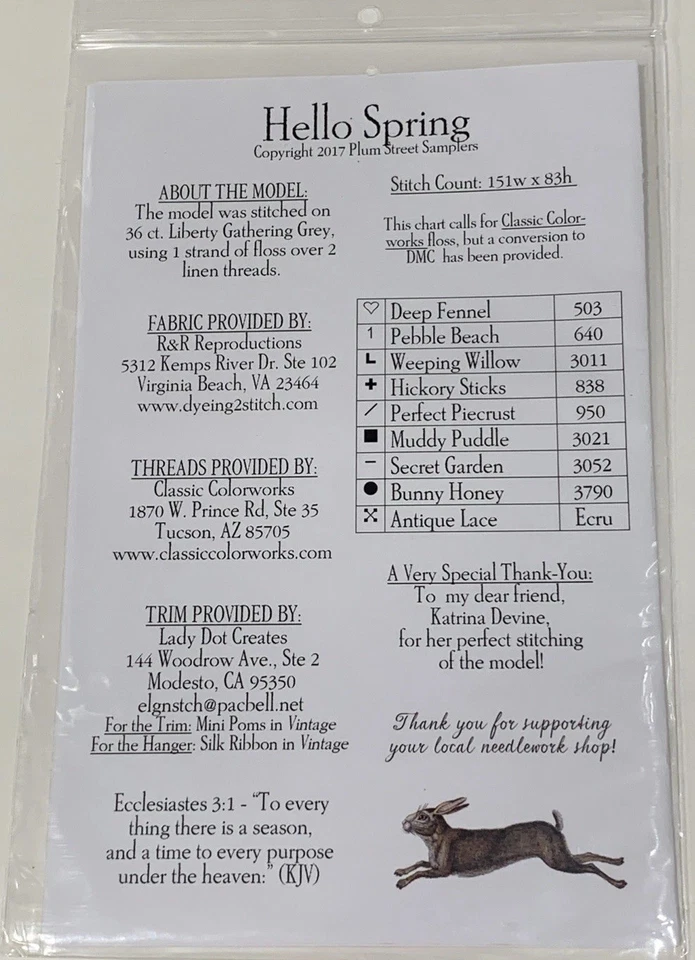 Hello Spring
Copyright 2017 Plum Street Samplers
ABOUT THE MODEL:
The model was stitched on
36 ct. Liberty Gathering Grey,
using 1 strand of floss over 2
linen threads.
FABRIC PROVIDED BY:
R&R Reproductions
5312 Kemps River Dr. Ste 102
Virginia Beach, VA 23464
www.dyeing2stitch.com
THREADS PROVIDED BY:
Classic Colorworks
1870 W. Prince Rd, Ste 35
Tucson, AZ 85705
www.classiccolorworks.com
TRIM PROVIDED BY:
Lady Dot Creates
144 Woodrow Ave., Ste 2
Modesto, CA 95350
elgnstch@pacbell.net
For the Trim: Mini Poms in Vintage
For the Hanger: Silk Ribbon in Vintage
Ecclesiastes 3:1 - “To every
thing there is a season,
and a time to every purpose
under the heaven:” (KJV)
Stitch Count: 151w x 83h
This chart calls for Classic Color-
works floss, but a conversion to
DMC has been provided.
♡ Deep Fennel 503
1 Pebble Beach 640
L Weeping Willow 3011
✚ Hickory Sticks 838
/ Perfect Piecrust 950
■ Muddy Puddle 3021
– Secret Garden 3052
● Bunny Honey 3790
Antique Lace Ecru
A Very Special Thank-You:
To my dear friend,
Katrina Devine,
for her perfect stitching
of the model!
Thank you for supporting
your local needlework shop!